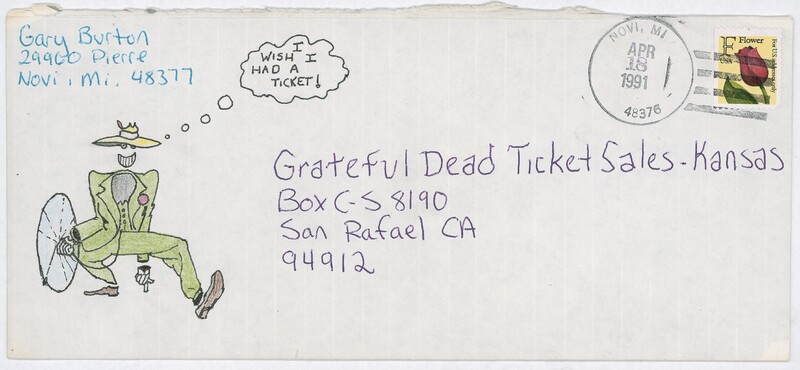 Gary Burton
29960 Pierre
Novi, Mi, 48377
I
WISH I
HAD A
TICKET!
NOVI, MI
APR
18
1991
48376
F Flower
For U.S. addresses only
Grateful Dead Ticket Sales - Kansas
Box C-S 8190
San Rafael CA
94912